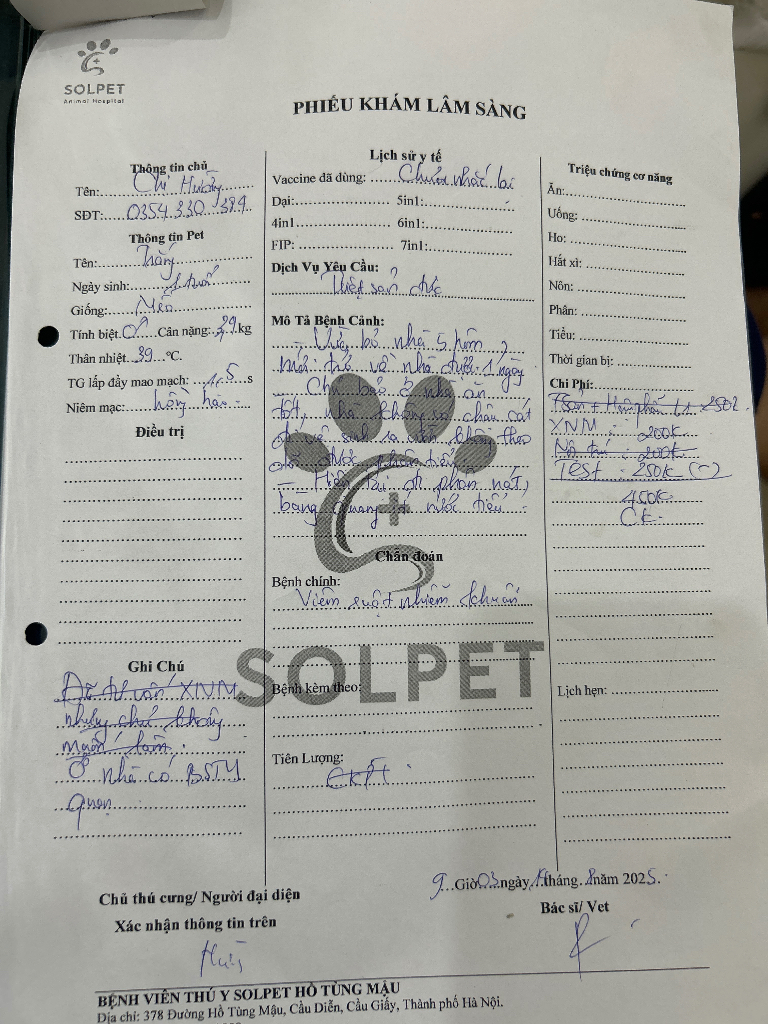 SOLPET
Animal Hospital
PHIẾU KHÁM LÂM SÀNG
Thông tin chủ
Tên: Chị Hường
SĐT: 0354.330.389
Thông tin Pet
Tên:
Ngày sinh: 1 tuổi
Giống: Mèo
Tính biệt: ♂ Cân nặng: 3,9 kg
Thân nhiệt 39 °C.
TG lấp đầy mao mạch: 1.5 s
Niêm mạc: hồng hào
Điều trị
Ghi Chú
Đã tư vấn XNM
nhưng chủ không
muốn làm.
Ở nhà có BSTY
quen
Lịch sử y tế
Vaccine đã dùng: Chưa nhắc lại
Dại: 5in1:
4in1 6in1:
FIP: 7in1:
Dịch Vụ Yêu Cầu:
Triệt sản đực
Mô Tả Bệnh Cảnh:
- bỏ nhà 5 hôm,
mới về nhà được 1 ngày
- Chủ báo ở nhà ăn
tốt, nhà không có chậu cát
đi vệ sinh ra ngoài không theo
dõi được phân tiểu
- Hiện tại đi phân nát,
bàng quang có nước tiểu
Chẩn đoán
Bệnh chính:
Viêm ruột nhiễm khuẩn
SOLPET
Bệnh kèm theo:
Tiên Lượng:
Triệu chứng cơ năng
Ăn:
Uống:
Ho:
Hắt xì:
Nôn:
Phân:
Tiểu:
Thời gian bị:
Chi Phí:
XNM : 200K
: 200K
Test : 250K (-)
450K
CK
Lịch hẹn:
9 Giờ 03 ngày tháng năm 2025
Chủ thú cưng/ Người đại diện
Xác nhận thông tin trên
Bác sĩ/ Vet
BỆNH VIỆN THÚ Y SOLPET HỒ TÙNG MẬU
Địa chỉ: 378 Đường Hồ Tùng Mậu, Cầu Diễn, Cầu Giấy, Thành phố Hà Nội.